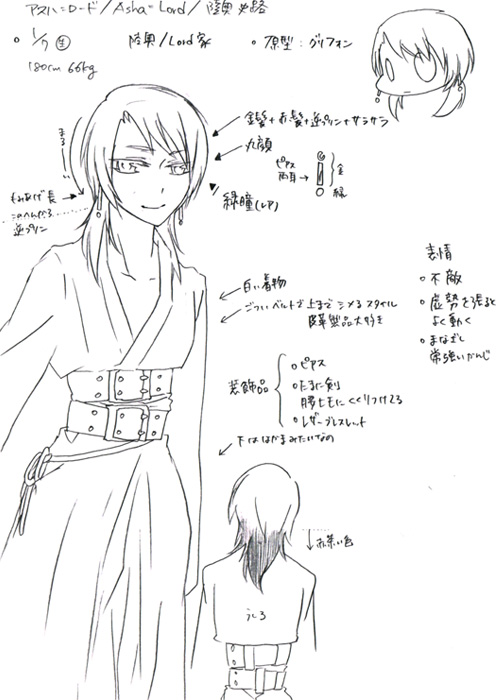 アスハ=ロード/Asha=Lord/陸奥
1/7生 陸奥/Lord家 原型:グリフォン
180cm 66kg
金髪+赤髪+逆プリン+サラサラ
丸顔
まるい
ピアス
両耳→
金
緑
もみあげ長
このへんから
逆プリン
緑瞳(レア)
白い着物
ごついベルトを上までシメるスタイル
皮革製品大好き
表情
不敵
虚勢を張ると
よく動く
まなざし
常強いかんじ
装飾品
ピアス
たまに剣
腰ヒモにくくりつけてる
レザーブレスレット
下ははかまみたいなの
赤茶い色
うしろ